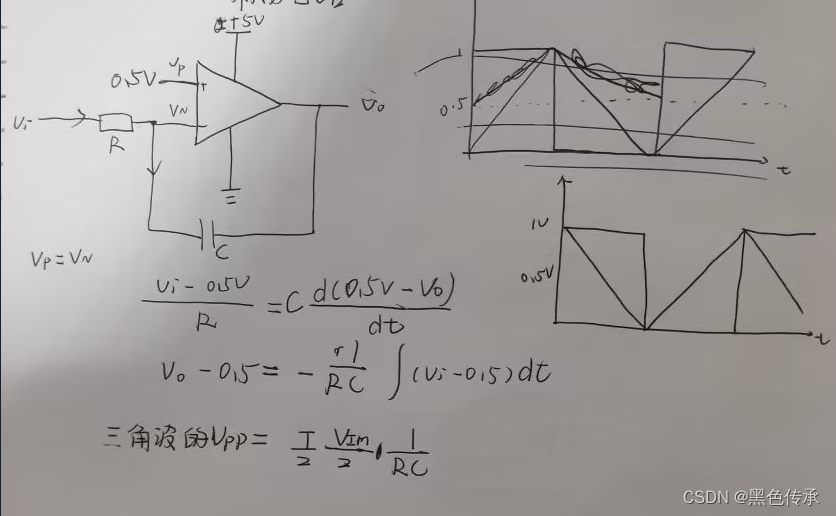 +5V
1
0.5V
VP
+
0.5
VN
Vi
Vo
R
-
t
C
1V
VP=VN
0.5V
(Vi-0.5V)/R = C d(0.5V-Vo)/dt
t
Vo-0.5= - 1/RC ∫(Vi-0.5)dt
三角波的VPP= T/2 VIm/2 · 1/RC
CSDN @黑色传承